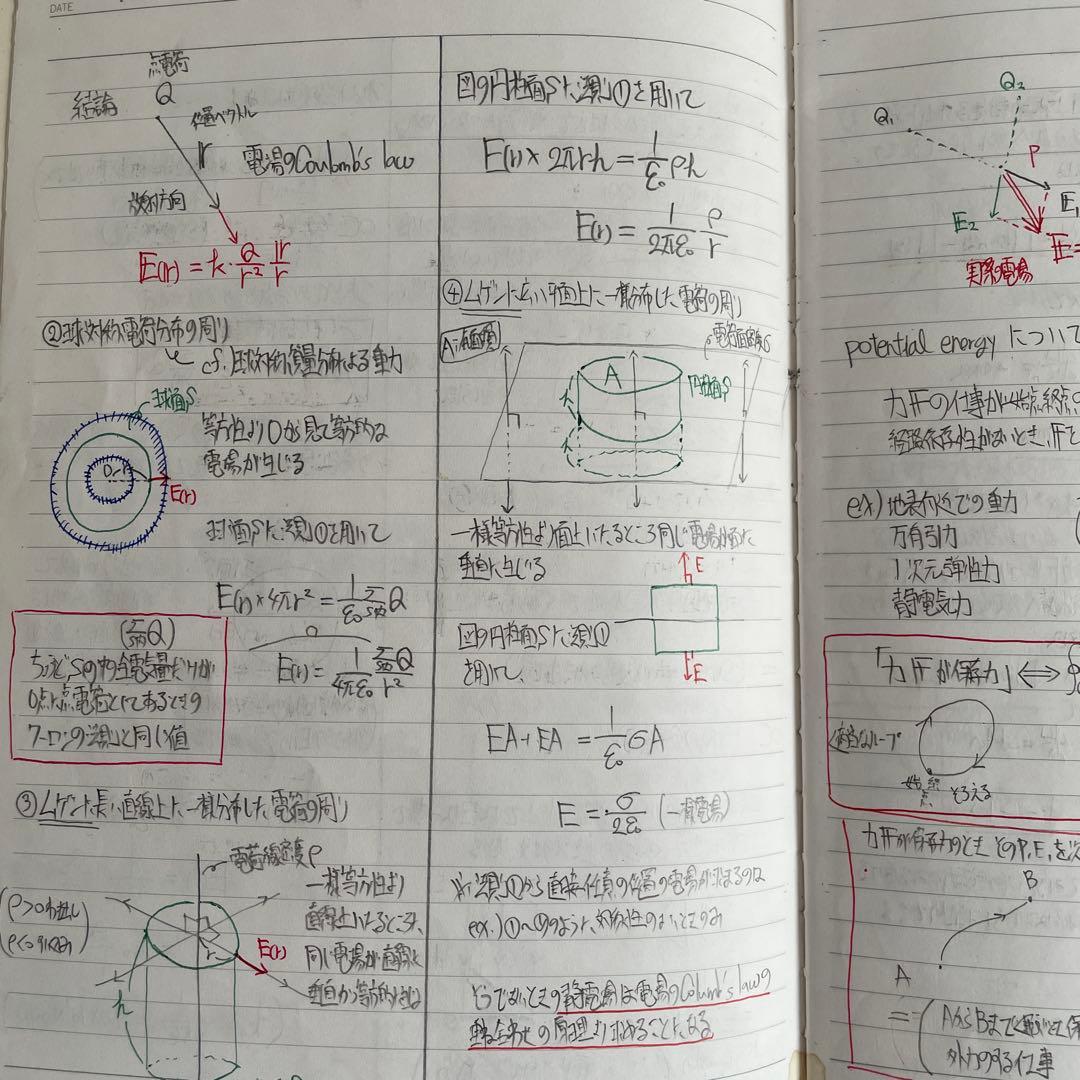 DATE
点電荷
Q
結論
位置ベクトル
r 電場のCoulomb's law
放射方向
E(r) = k Q/r² r/r
②球対称電荷分布の周り
cf. 球対称質量分布による重力
球面S
等方性よりOから見て等方的な
電場が生じる
O r
E(r)
球面Sに法則①を用いて
E(r)×4πr² = 1/ε₀ Σ Q
E(r) = 1/4πε₀ ΣQ/r²
(ΣQ)
ちょうどSの中の全電気量だけが
O点に点電荷としてあるときの
クーロンの法則と同じ値
③ムゲンに長い直線上に一様分布した電荷の周り
電荷線密度ρ
(ρ>0わき出し
ρ<0)
一様等方性より
直線上いたるところで、
同じ電場が直線に
垂直かつ等方的に
E(r)
r
h
図の円柱面Sに法則①を用いて
E(r)×2πrh = 1/ε₀ ρh
E(r) = 1/2πε₀ ρ/r
④ムゲンに広い平面上に一様分布した電荷の周り
A:底面積
電荷面密度σ
A
円柱面S
h
h
一様等方性より面上いたるところ同じ電場が面に
垂直に生じる
E
図の円柱面Sに法則①
を用いて、
E
EA+EA = 1/ε₀ σA
E = σ/2ε₀ (一様電場)
※法則①から直接任意の位置の電場が求まるのは
ex.)①~④のように、対称性のよいときのみ
そうでないときの静電場は電場のColumb's lawの
重ね合わせの原理より求めることになる
Q₂
Q₁
P
E₁
E₂
E=
実際の電場
potential energy について
力Fの仕事が始点、終点の
経路依存性がないとき、Fを
ex)地表付近での重力
万有引力
1次元弾性力
静電気力
「力Fが保存力」⇔ ∮
適当なループ
始点 終点 とらえる
力Fが保存力のとき そのP.E.を次
B
A
= (AからBまで運ぶとき保
外力のする仕事